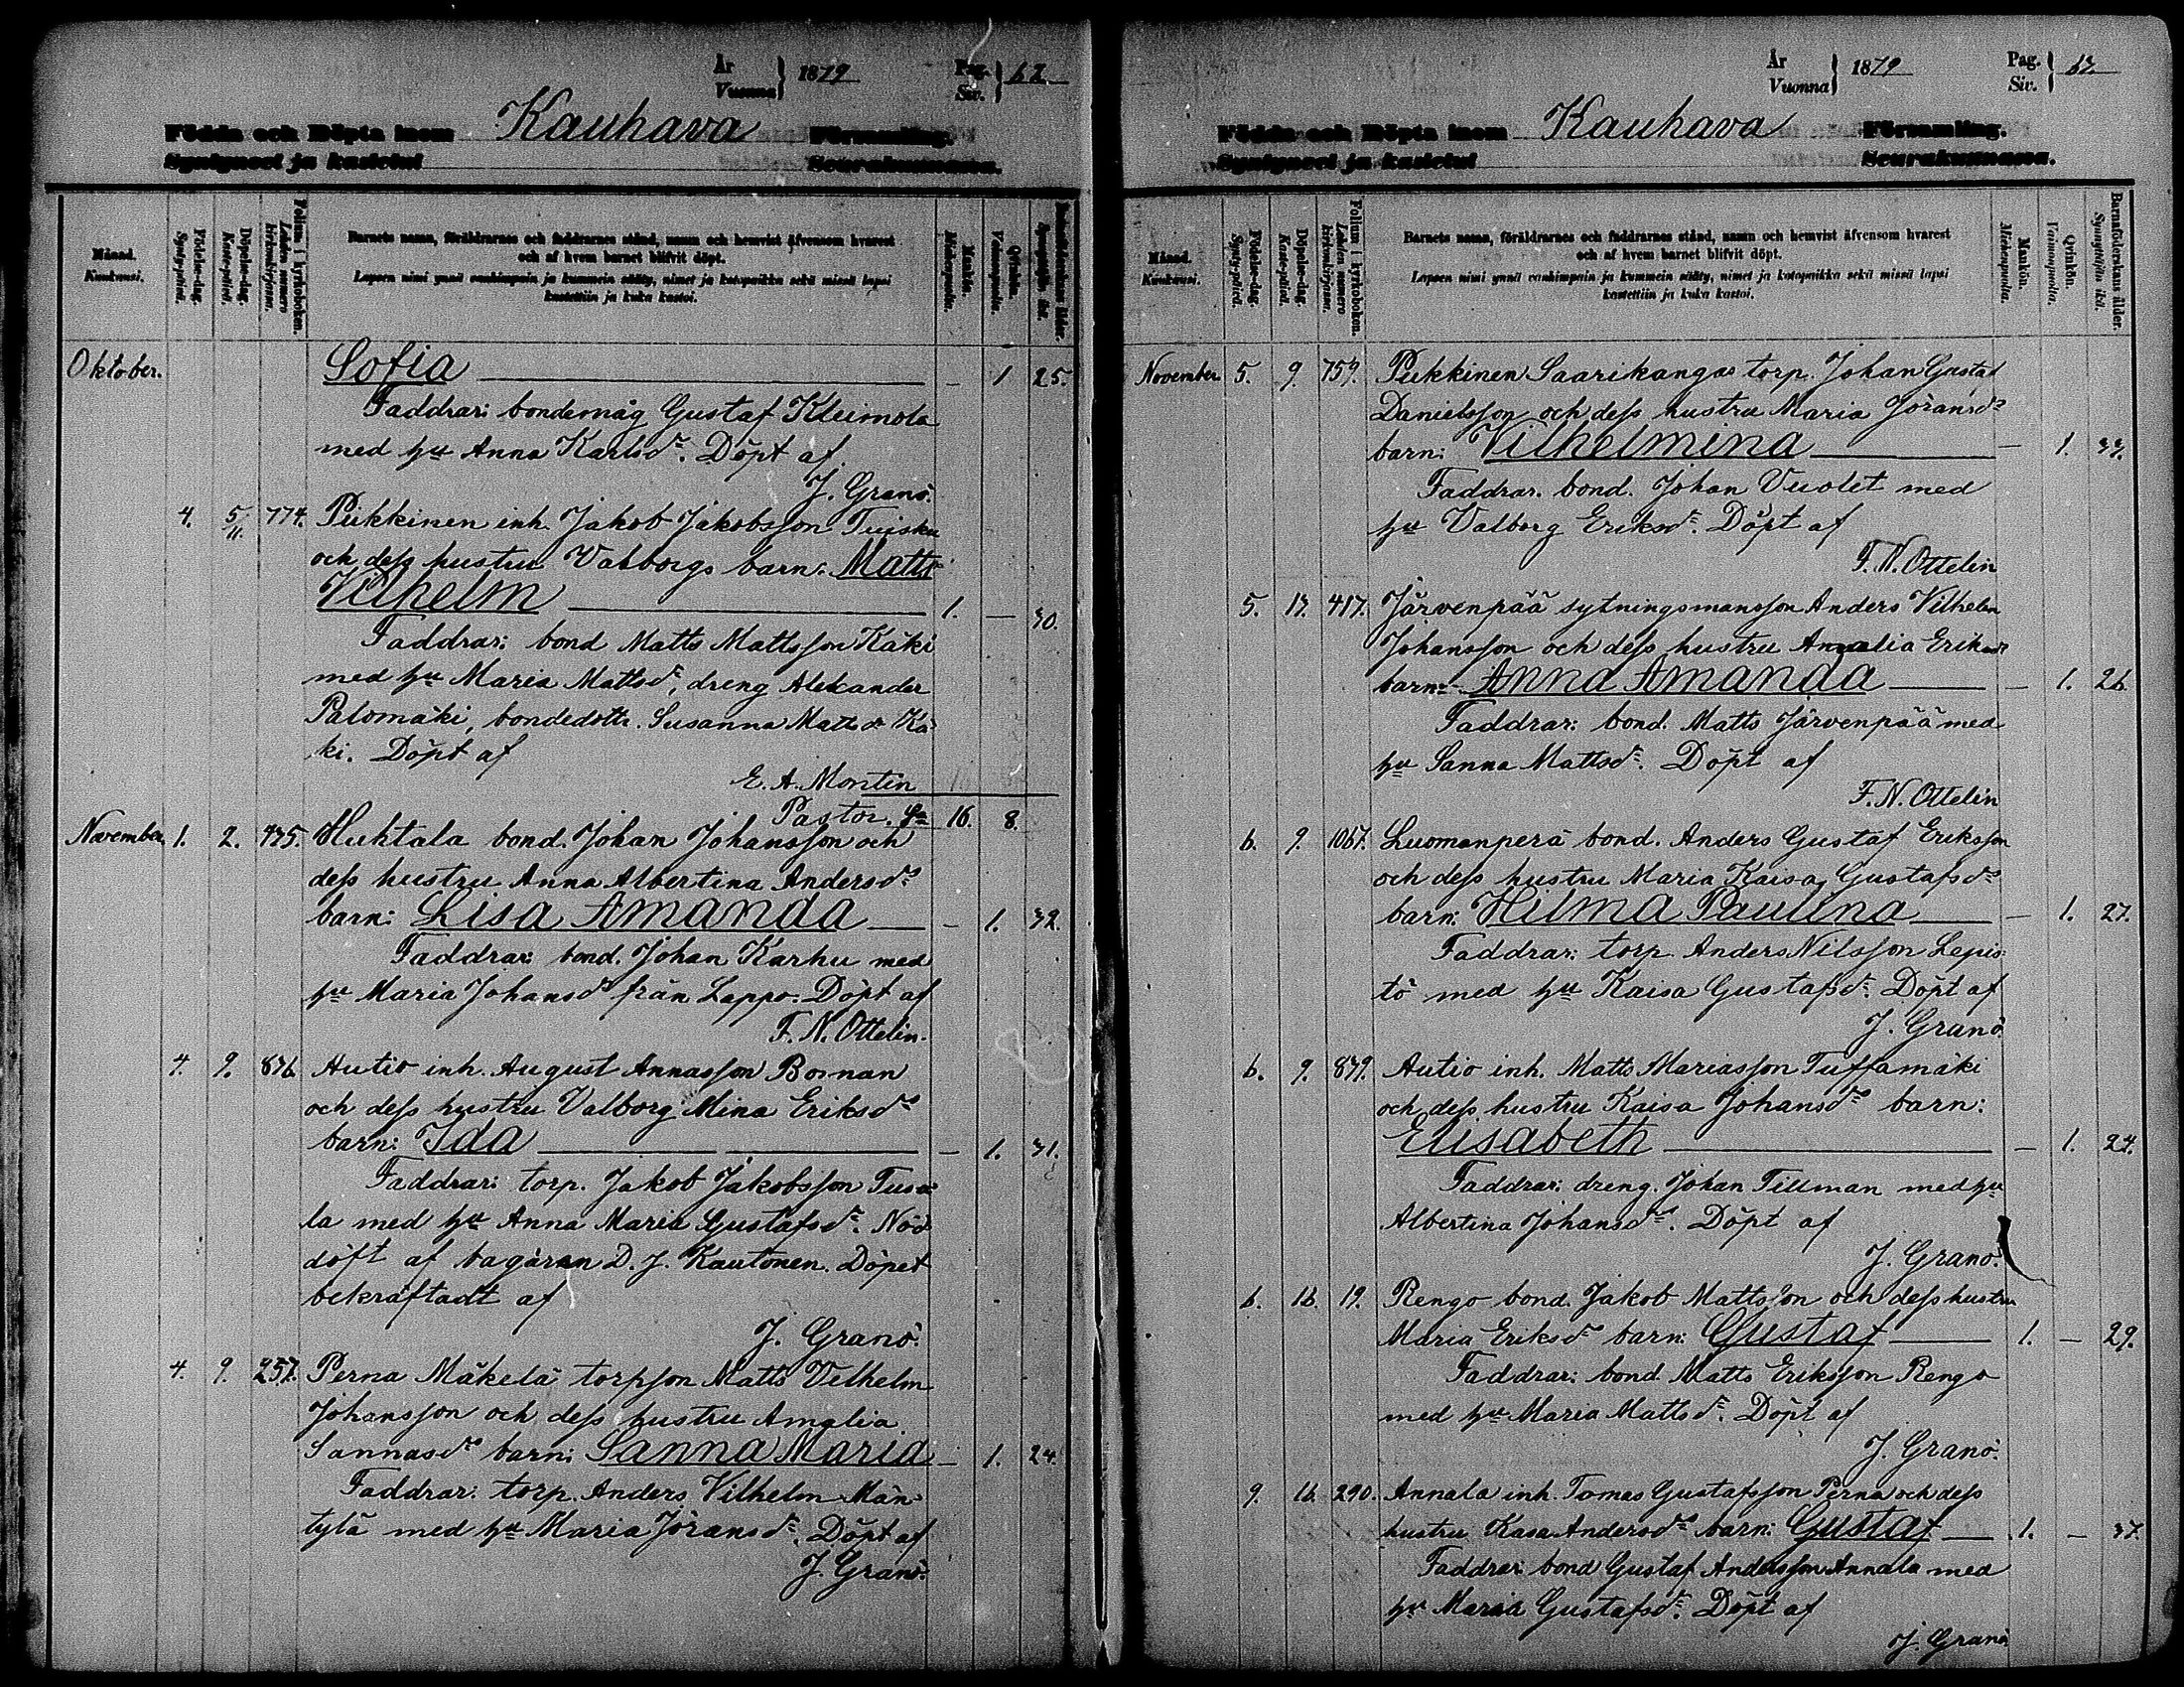 År
Vuonna } 1879 Pag. Siv. } 62
Födda och Döpta inom Kauhava Församling.
Syntyneet ja kastetut Seurakunnassa.
Månad.
Kuukausi.
Födelse-dag.
Syntypäivä.
Döpelse-dag.
Kastepäivä.
Folium i kyrkoboken.
Lehden numero kirkonkirjassa.
Barnets namn, föräldrarnes och faddrarnes stånd, namn och hemvist äfvensom hvarest
och af hvem barnet blifvit döpt.
Lapsen nimi ynnä vanhimpain ja kummein sääty, nimet ja kotopaikka sekä missä lapsi
kastettiin ja kuka kastoi.
Mankön.
Miehenpuolia.
Qvinkön.
Vaimonpuolia.
Barnaföderskans ålder.
Synnyttäjän ikä.
Oktober. Sofia — 1 25.
Faddrar: bondemåg Gustaf Kleimola
med hu Anna Karlsdr. Döpt af
J. Granö.
4. 5/11. 774. Piikkinen inh. Jakob Jakobsson Tuisku
och dess hustru Valborgs barn: Matts
Vilhelm 1. — 30.
Faddrar: bond Matts Mattsson Käki
med hu Maria Mattsdr, dreng Aleksander
Palomäki, bondedottr. Susanna Mattsdr Kä-
ki. Döpt af
E. A. Montin
Pastor. Sa 16. 8.
November. 1. 2. 435. Huhtala bond. Johan Johansson och
dess hustru Anna Albertina Andersdrs
barn: Lisa Amanda — 1. 32.
Faddrar: bond. Johan Karhu med
hu Maria Johansdr från Lappo. Döpt af
F. N. Ottelin.
4. 9. 836. Autio inh. August Annasson Bosnan
och dess hustru Valborg Mina Eriksdrs
barn: Ida — 1. 31.
Faddrar: torp. Jakob Jakobsson Tusa
la med hu Anna Maria Gustafsdr. Nöd
döpt af bagaren D. J. Kautonen. Döpet
bekräftadt af
J. Granö.
4. 9. 257. Perna Mäkelä torpson Matts Vilhelm
Johansson och dess hustru Amalia
Sannasdrs barn: Sanna Maria — 1. 24.
Faddrar: torp. Anders Vilhelm Män-
tylä med hu Maria Göransdr. Döpt af
J. Granö.
År
Vuonna } 1879 Pag. Siv. } 63.
Födda och Döpta inom Kauhava Församling.
Syntyneet ja kastetut Seurakunnassa.
Månad.
Kuukausi.
Födelse-dag.
Synty-päivä.
Döpelse-dag.
Kaste-päivä.
Folium i kyrkoboken.
Lehden numero kirkonkirjassa.
Barnets namn, föräldrarnes och faddrarnes stånd, namn och hemvist äfvensom hvarest
och af hvem barnet blifvit döpt.
Lapsen nimi ynnä vanhimpain ja kummein sääty, nimet ja kotopaikka sekä missä lapsi
kastettiin ja kuka kastoi.
Mankön.
Miehenpuolia.
Qvinkön.
Vaimonpuolia.
Barnaföderskans ålder.
Synnyttäjän ikä.
November. 5. 9. 759. Piikkinen Saarikangas torp. Johan Gustaf
Danielsson och dess hustru Maria Göransdrs
barn: Vilhelmina — 1. 33.
Faddrar. bond. Johan Vuolet med
hu Valborg Eriksdr. Döpt af
F. N. Ottelin
5. 17. 417. Järvenpää sytningsmansson Anders Vilhelm
Johansson och dess hustru Amalia Eriksdrs
barn: Anna Amanda — 1. 26.
Faddrar: bond. Matts Järvenpää med
hu Sanna Mattsdr. Döpt af
F. N. Ottelin
6. 9. 1067. Luomanperä bond. Anders Gustaf Eriksson
och dess hustru Maria Kaisa Gustafsdrs
barn: Hilma Paulina — 1. 27.
Faddrar: torp. Anders Nilsson Lepis-
tö med hu Kaisa Gustafsdr. Döpt af
J. Granö.
6. 9. 839. Autio inh. Matts Mariasson Tuffamäki
och dess hustru Kaisa Johansdrs barn:
Elisabeth — 1. 24.
Faddrar: dreng. Johan Tillman med hu
Albertina Johansdr. Döpt af
J. Granö.
6. 16. 19. Rengo bond. Jakob Mattsson och dess hustru
Maria Eriksdrs barn: Gustaf 1. — 29.
Faddrar: bond. Matts Eriksson Rengo
med hu Maria Mattsdr. Döpt af
J. Granö.
9. 16. 290. Annala inh. Tomas Gustafsson Perna och dess
hustru Kasa Andersdrs barn: Gustaf 1. — 37.
Faddrar: bond Gustaf Andersson Annala med
hu Maria Gustafsdr. Döpt af
J. Granö